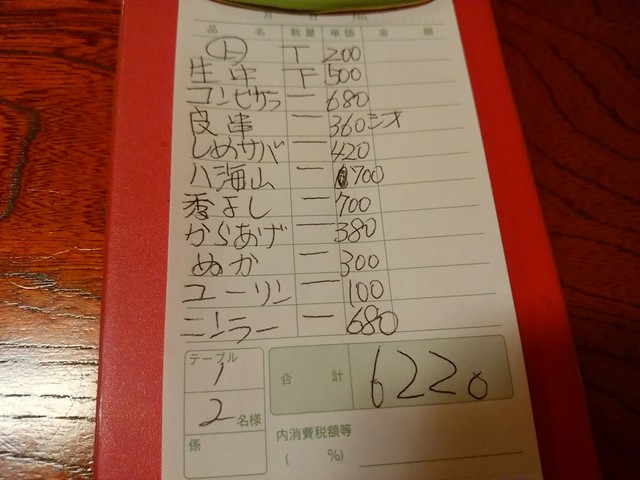 月 日 No.
品 名 数量 単価 金 額
ト T 200
生中 T 500
コンビサラ 一 680
皮串 一 360シオ
しめサバ 一 420
八海山 一 700
秀よし 一 700
からあげ 一 380
ぬか 一 300
ユーリン 一 100
ニンラー 一 680
テーブル 1
合 計 6220
2 名様
係
内消費税額等
( %)